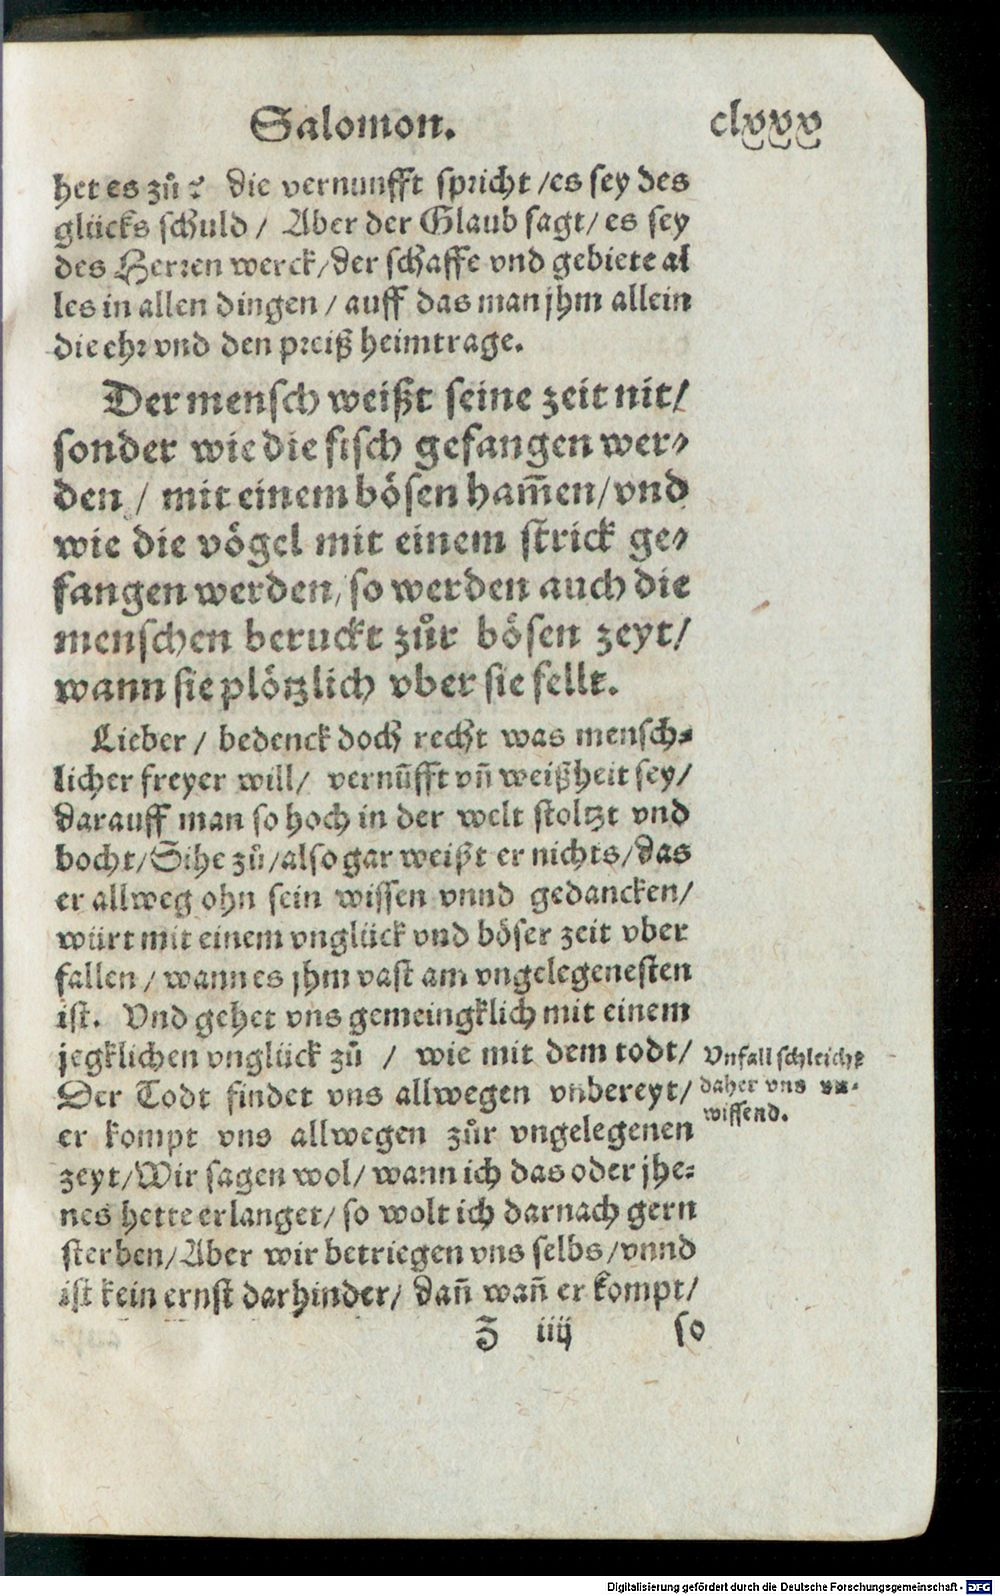 Salomon. clxxx
het es zů? die vernunfft spricht /es sey des
glücks schuld / Aber der Glaub sagt/ es sey
des Herren werck/der schaffe vnd gebiete al
les in allen dingen / auff das man jhm allein
die ehr vnd den preiß heimtrage.
Der mensch weißt seine zeit nit/
sonder wie die fisch gefangen wer-
den / mit einem bösen ham̄en/vnd
wie die vögel mit einem strick ge-
fangen werden/so werden auch die
menschen beruckt zůr bösen zeyt/
wann sie plötzlich vber sie fellt.
Lieber / bedenck doch recht was mensch-
licher freyer will/ vernūfft vn̄ weißheit sey/
darauff man so hoch in der welt stoltzt vnd
bocht/Sihe zů/also gar weißt er nichts/das
er allweg ohn sein wissen vnnd gedancken/
würt mit einem vnglück vnd böser zeit vber
fallen / wann es jhm vast am vngelegenesten
ist. Vnd gehet vns gemeingklich mit einem
jegklichen vnglück zů / wie mit dem todt/
Der Todt findet vns allwegen vnbereyt/
er kompt vns allwegen zůr vngelegenen
zeyt/Wir sagen wol/ wann ich das oder jhe-
nes hette erlanget/ so wolt ich darnach gern
sterben/Aber wir betriegen vns selbs/vnnd
ist kein ernst darhinder/ dan̄ wan̄ er kompt/
Z iiij so
Vnfall schleicht
daher vns vn-
wissend.
Digitalisierung gefördert durch die Deutsche Forschungsgemeinschaft - DFG